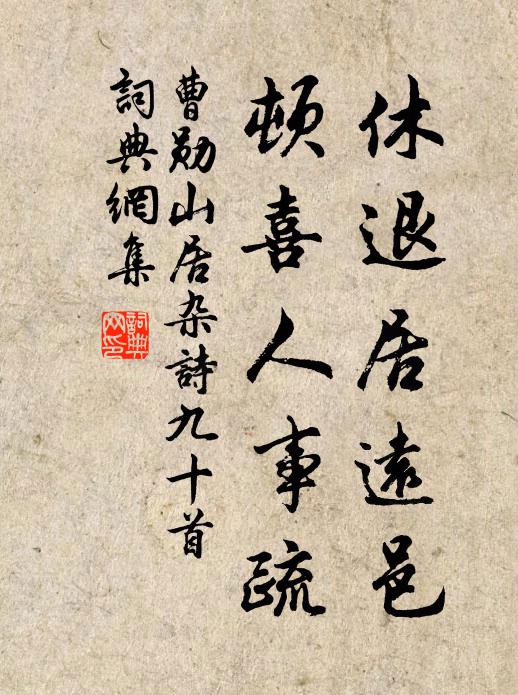 休退居遠邑
頓喜人事疏
曹勛山居杂詩九十首
詞典網集
詞典
网印